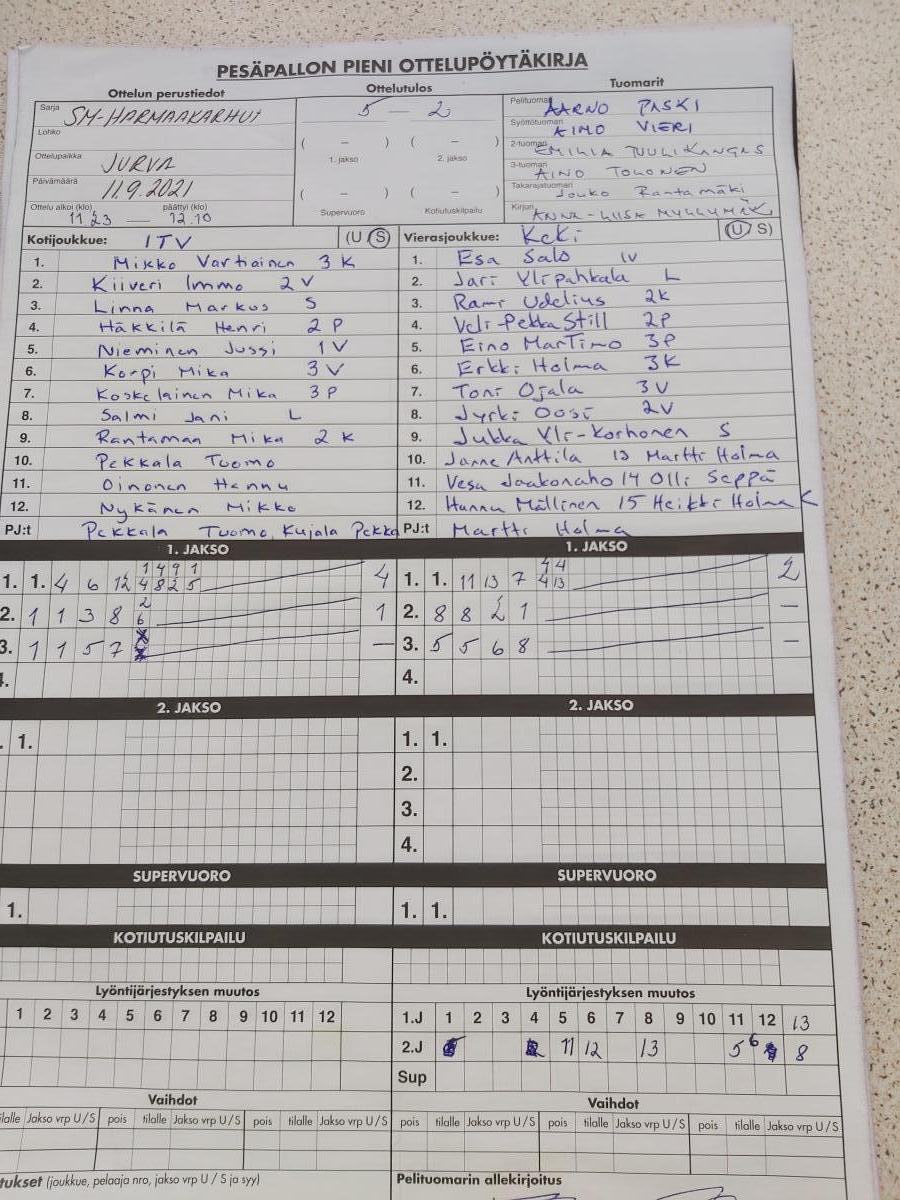 PESÄPALLON PIENI OTTELUPÖYTÄKIRJA
Ottelun perustiedot Ottelutulos Tuomarit
Sarja SM-HARMAAKARHUT 5 – 2 Pelituomari AARNO PASKI
Lohko Syöttötuomari AIMO VIERI
( – ) ( – ) 2-tuomari EMILIA TUULIKANGAS
Ottelupaikka JURVA 1. jakso 2. jakso 3-tuomari AINO TOLONEN
Päivämäärä 11.9.2021 ( – ) ( – ) Takarajatuomari Jouko Rantamäki
Ottelu alkoi (klo) päättyi (klo) Supervuoro Kotiutuskilpailu Kirjuri ANNA-LIISA MYLLYMÄKI
11 23 — 12.10
Kotijoukkue: ITV (U S) Vierasjoukkue: KeKi (U S)
1. Mikko Vartiainen 3 K 1. Esa Salo IV
2. Kiiveri Immo 2 V 2. Jari Ylipahkala L
3. Linna Markus S 3. Rami Udelius 2K
4. Häkkilä Henri 2 P 4. Veli-Pekka Still 2P
5. Nieminen Jussi 1 V 5. Eino Martimo 3P
6. Korpi Mika 3 V 6. Erkki Holma 3K
7. Koskelainen Mika 3 P 7. Toni Ojala 3V
8. Salmi Jani L 8. Jyrki Oosi 2V
9. Rantamaa Mika 2 K 9. Jukka Yli-Korhonen S
10. Pekkala Tuomo 10. Janne Anttila 13 Martti Holma
11. Oinonen Hannu 11. Vesa Jaakonaho 14 Olli Seppä
12. Nykänen Mikko 12. Hannu Mällinen 15 Heikki Holma K
PJ:t Pekkala Tuomo, Kujala Pekka PJ:t Martti Holma
1. JAKSO 1. JAKSO
1 4 9 1 4 4
1. 1. 4 6 12 4 8 2 5 4 1. 1. 11 13 7 4 13 2
2
2. 1 1 3 8 6 1 2. 8 8 2 1 –
3. 1 1 5 7 – 3. 5 5 6 8 –
4.
2. JAKSO 2. JAKSO
. 1. 1. 1.
2.
3.
4.
SUPERVUORO SUPERVUORO
1. 1. 1.
KOTIUTUSKILPAILU KOTIUTUSKILPAILU
Lyöntijärjestyksen muutos Lyöntijärjestyksen muutos
1 2 3 4 5 6 7 8 9 10 11 12 1.J 1 2 3 4 5 6 7 8 9 10 11 12 13
2.J 11 12 13 5 6 8
Sup
Vaihdot Vaihdot
tilalle Jakso vrp U/S pois tilalle Jakso vrp U/S pois tilalle Jakso vrp U/S pois tilalle Jakso vrp U/S pois tilalle Jakso vrp U/S pois tilalle Jakso vrp U/S
tukset (joukkue, pelaaja nro, jakso vrp U / S ja syy) Pelituomarin allekirjoitus